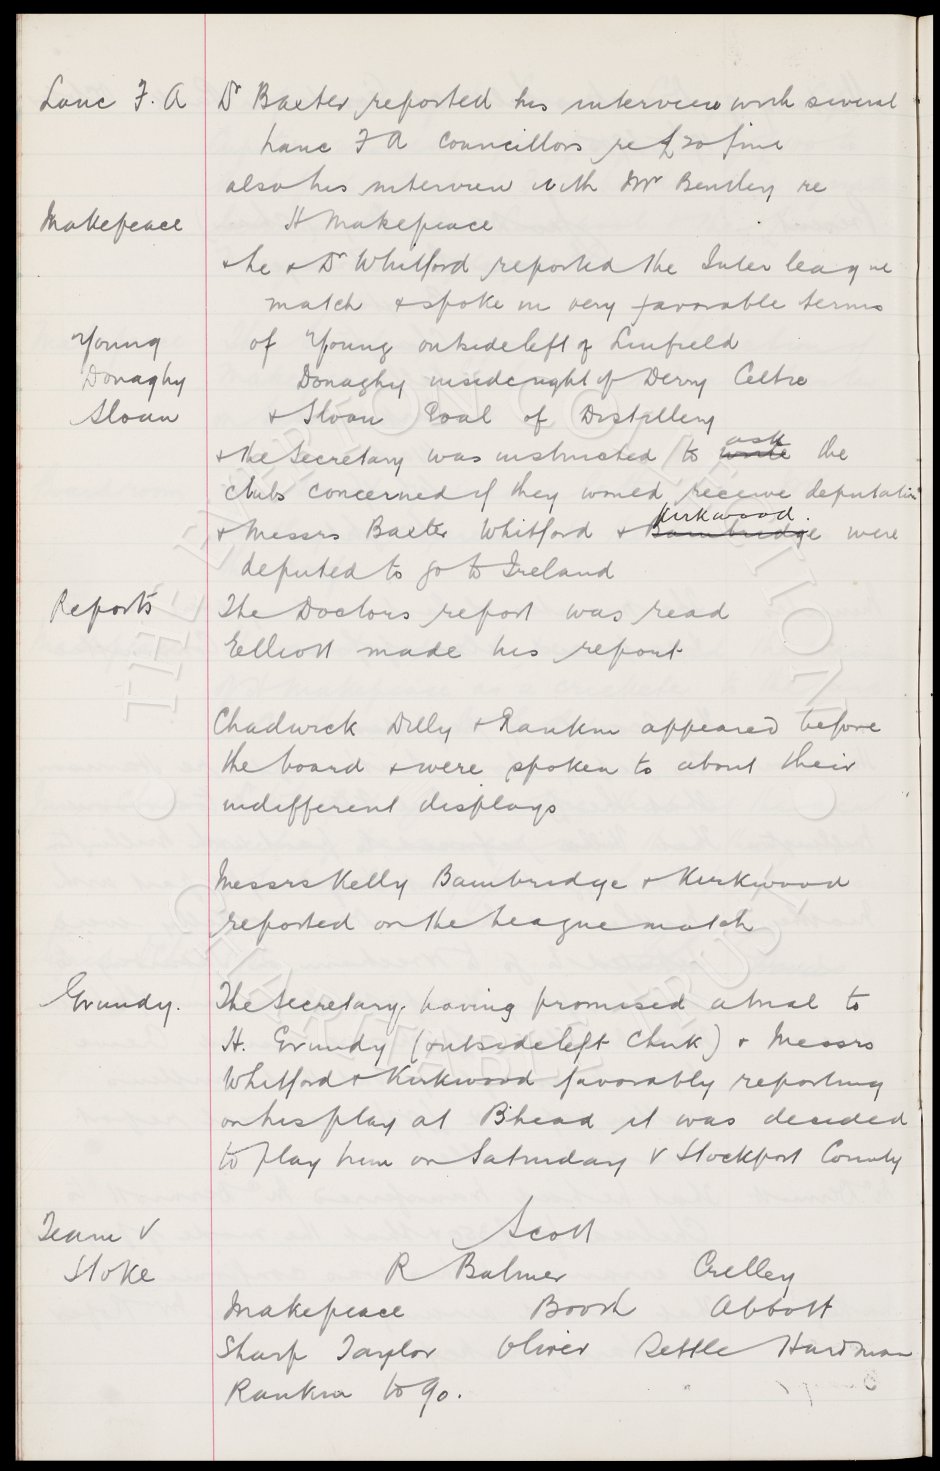 Lanc F. A Dr Baxter reported his interview with several
Lanc F A Councillors re £20 fine
also his interview with Mr Bentley re
Makepeace H Makepeace
& he & Dr Whitford reported the Inter league
match & spoke in very favorable terms
Young of Young outside left of Linfield
Donaghy Donaghy inside right of Derry Celtic
Sloan & Sloan Goal of Distillery
& the Secretary was instructed to write ask the
clubs concerned if they would receive deputation
& Messrs Baxter Whitford & Bainbridge Kirkwood. were
deputed to go to Ireland
Reports The Doctors report was read
Elliott made his report
Chadwick Dilly & Rankin appeared before
the board & were spoken to about their
indifferent displays
Messrs Kelly Bainbridge & Kirkwood
reported on the League match
Grundy. The Secretary having promised a trial to
H. Grundy (outside left Chirk) & Messrs
Whitford & Kirkwood favorably reporting
on his play at B'head it was decided
to play him on Saturday v Stockport County
Team v Scott
Stoke R Balmer Crelley
Makepeace Booth Abbott
Sharp Taylor Oliver Settle Hardman
Rankin to go.
THE EVERTON COLLECTION
CHARITABLE TRUST